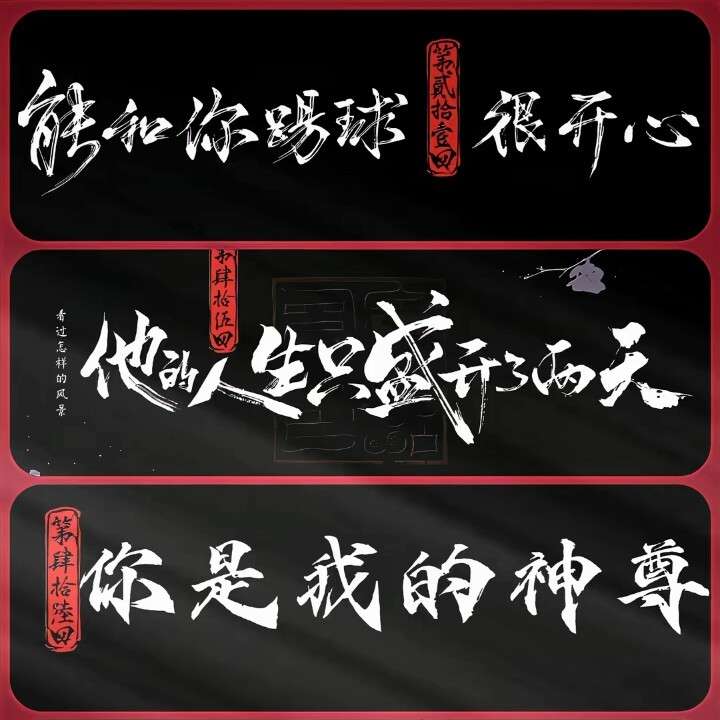 第贰拾壹回
能和你踢球很开心
第肆拾伍回
看过怎样的风景
他的人生只盛开了两天
第肆拾陆回
你是我的神尊